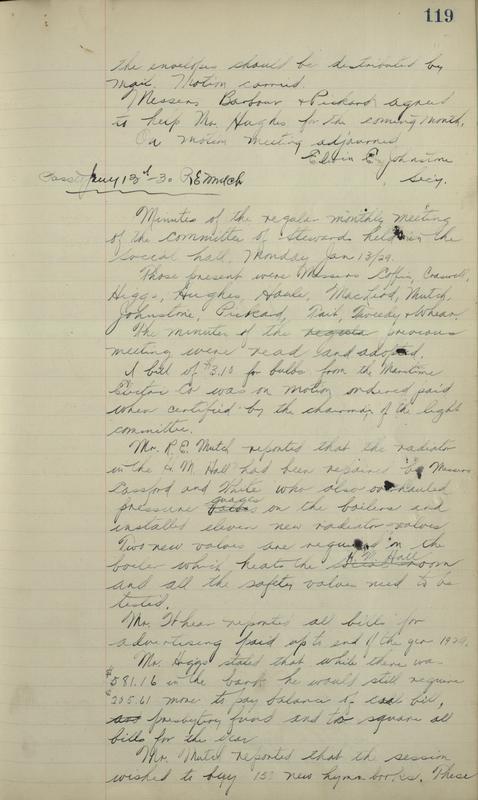 119
the envelopes should be distributed by
mail. Motion carried.
Messers Barbour & Pickard agreed
to help Mr. Hughes for the coming month.
On motion meeting adjourned
Elvin E. Johnstone
Secy.
Passed Jany 13th - 30 REMutch
Minutes of the regular monthly meeting
of the committee of Stewards held in the
Social hall, Monday Jan 13/29.
Those present were Messers Coffin,
Higgs, Hughes, Howle, MacLeod, Mutch,
Johnstone, Pickard, Tait, Tweedy & Whear
The minutes of the regula previous
meeting were read and adopted.
A bill of $3.10 for bulbs from the Maritime
Electric Co was on motion ordered paid
when certified by the chairman of the light
committee.
Mr. R.E. Mutch reported that the radiator
in the H. M. Hall had been repaired by Messers
Passford and White who also overhauled
pressure guages on the boilers and
installed eleven new radiator valves
Two new valves are required on the
boiler which heats the H. M. Hall room
and all the safety valves need to be
tested.
Mr. Whear reported all bills for
advertising paid up to end of the year 1929.
Mr. Higgs stated that while there was
$581.16 in the bank he would still require
$205.61 more to pay balance of coal bill,
and presbytery fund and to square all
bills for the year
Mr. Mutch reported that the session
wished to buy 150 new hymn books. These